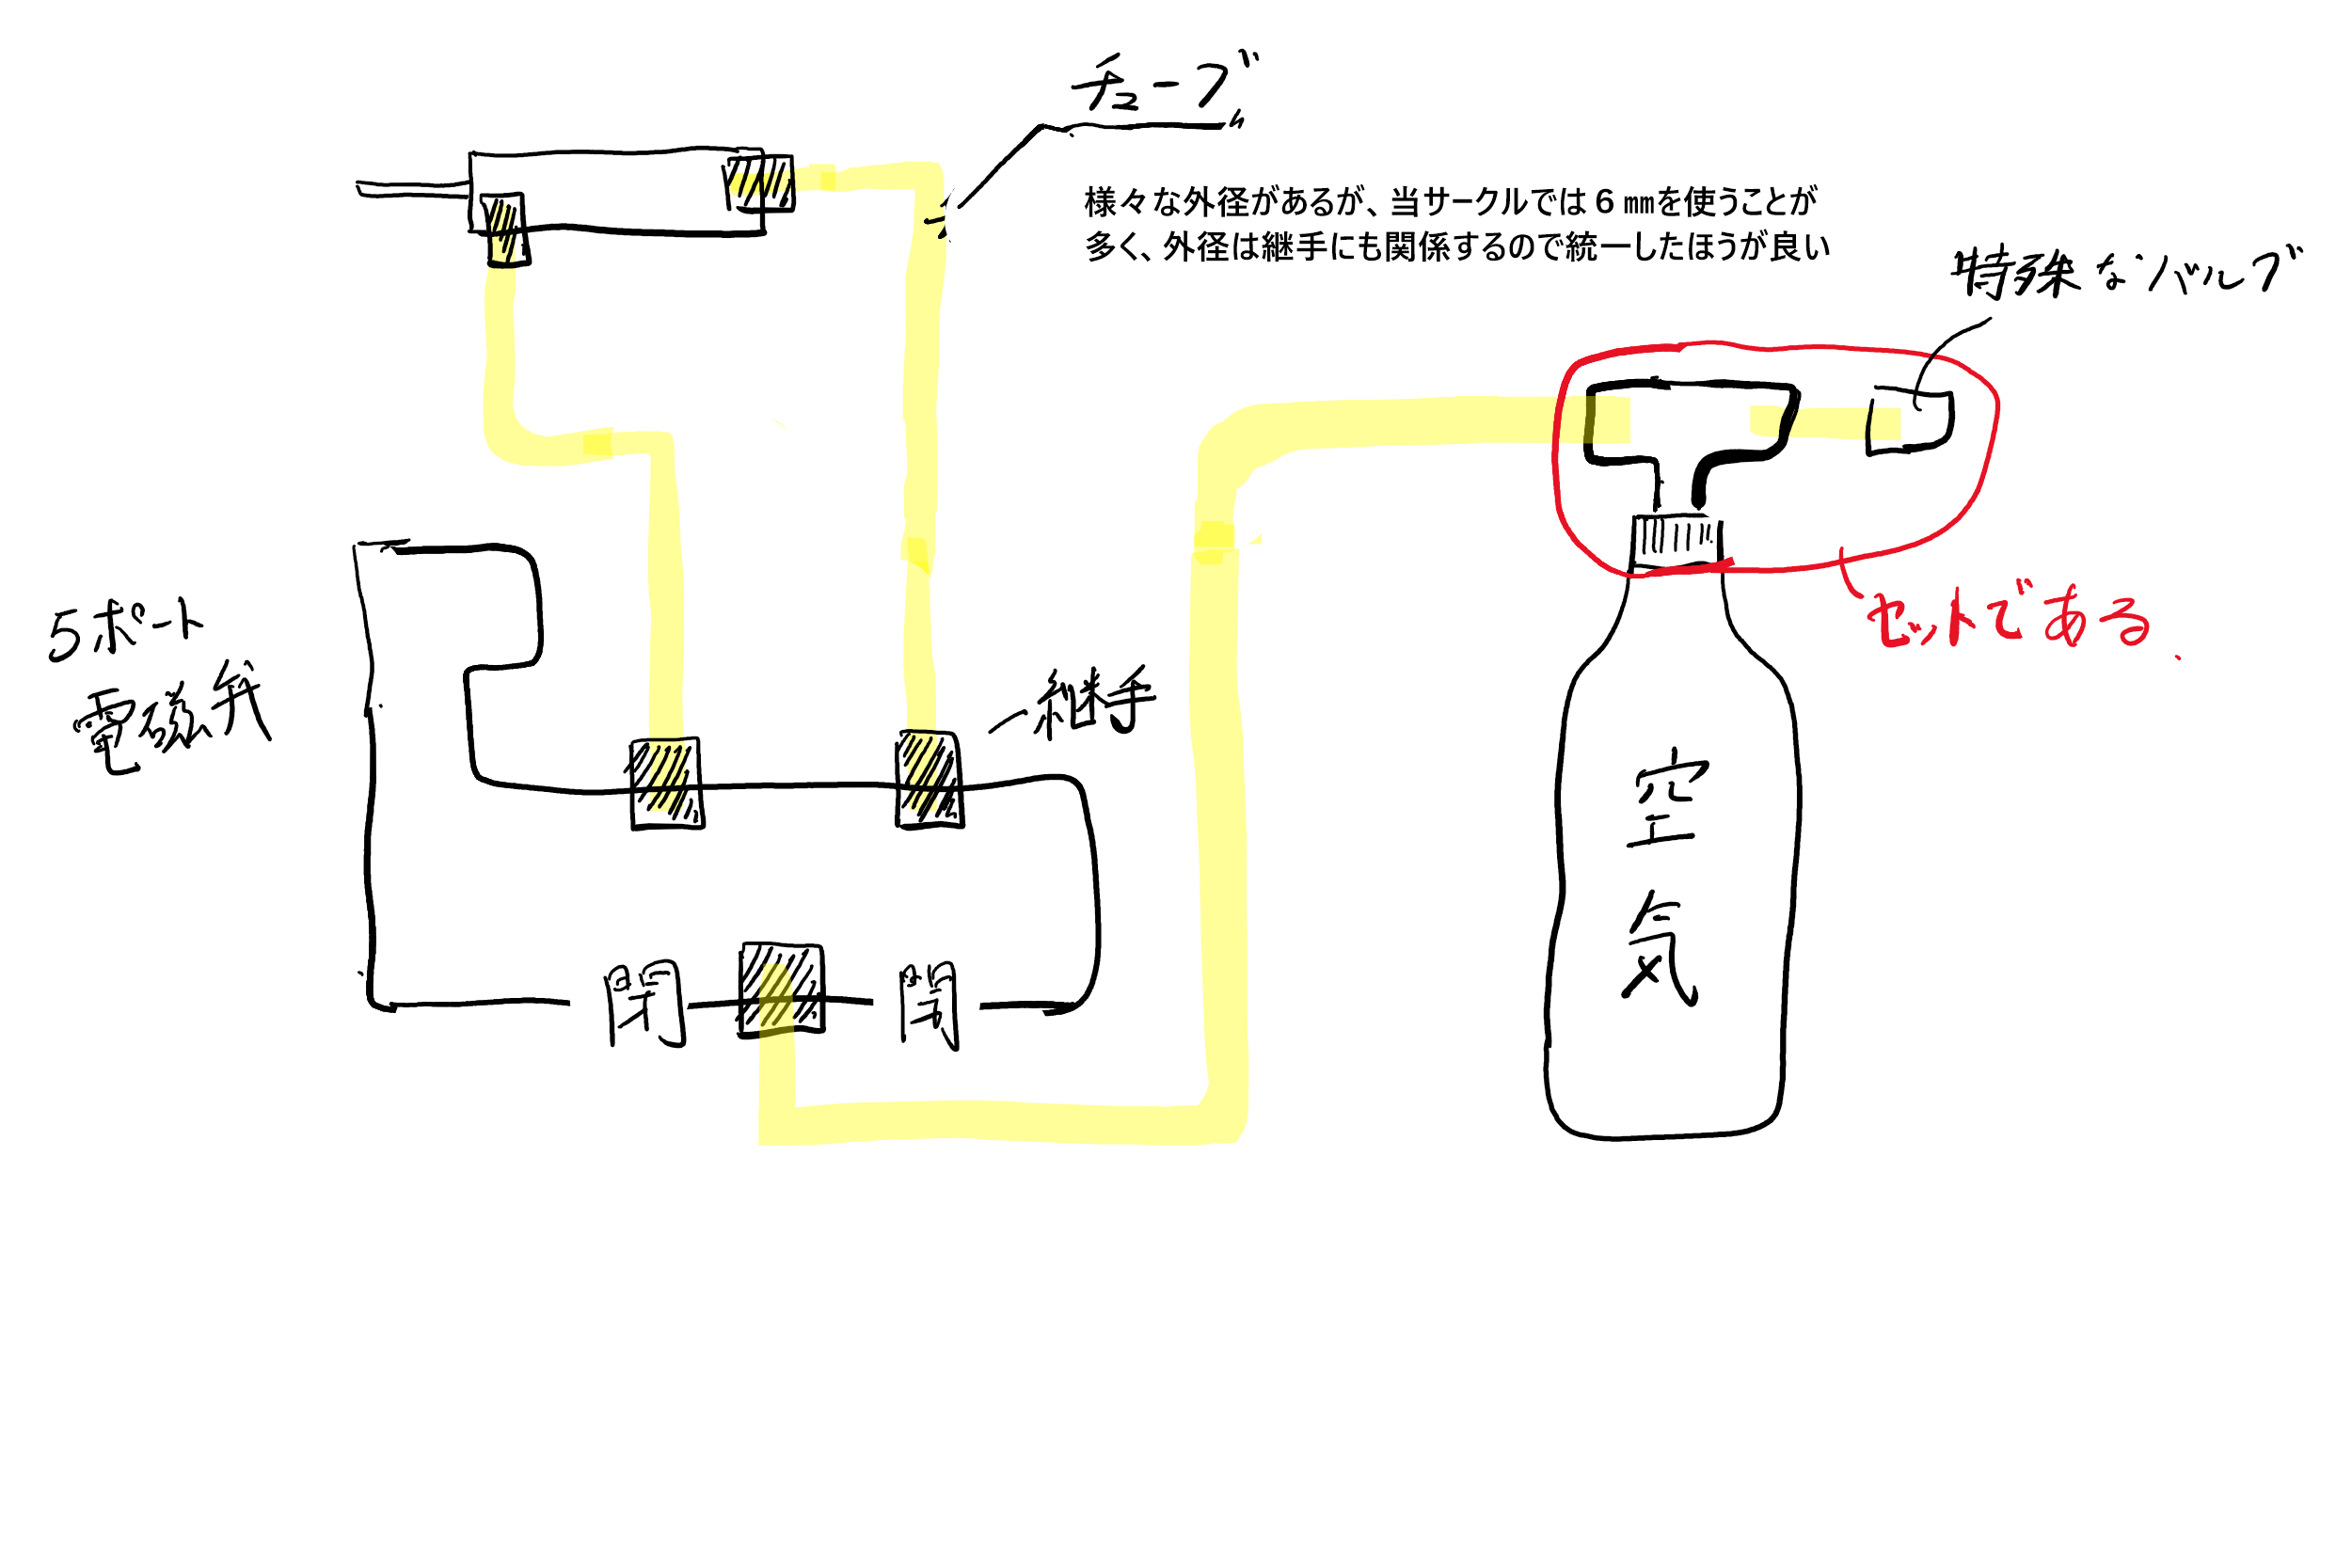 チューブ
様々な外径があるが、当サークルでは6㎜を使うことが
多く、外径は継手にも関係するので統一したほうが良い
特殊なバルブ
セットである.
5ポート
電磁弁
継手
空
気
閉
閉